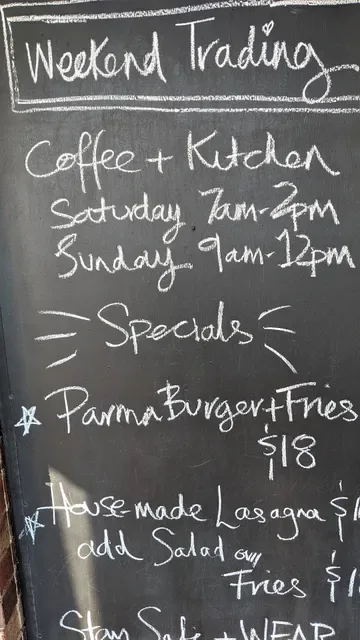 Weekend Trading
Coffee + Kitchen
Saturday 7am-2pm
Sunday 9am-12pm
Specials
Parma Burger + Fries
$18
House made Lasagna
add Salad
Fries
Stay Safe + WEAR